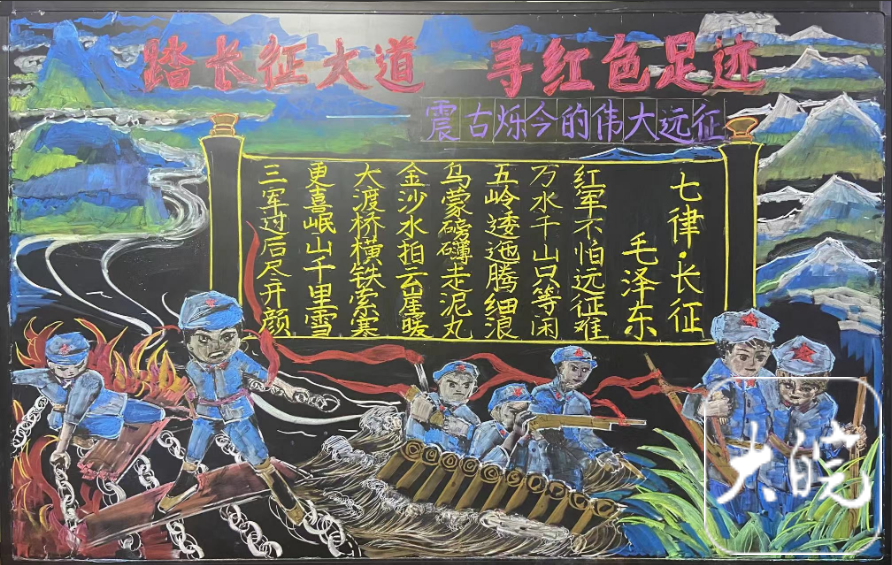 踏长征大道 寻红色足迹
震古烁今的伟大远征
七律·长征
毛泽东
红军不怕远征难
万水千山只等闲
五岭逶迤腾细浪
乌蒙磅礴走泥丸
金沙水拍云崖暖
大渡桥横铁索寒
更喜岷山千里雪
三军过后尽开颜
大皖